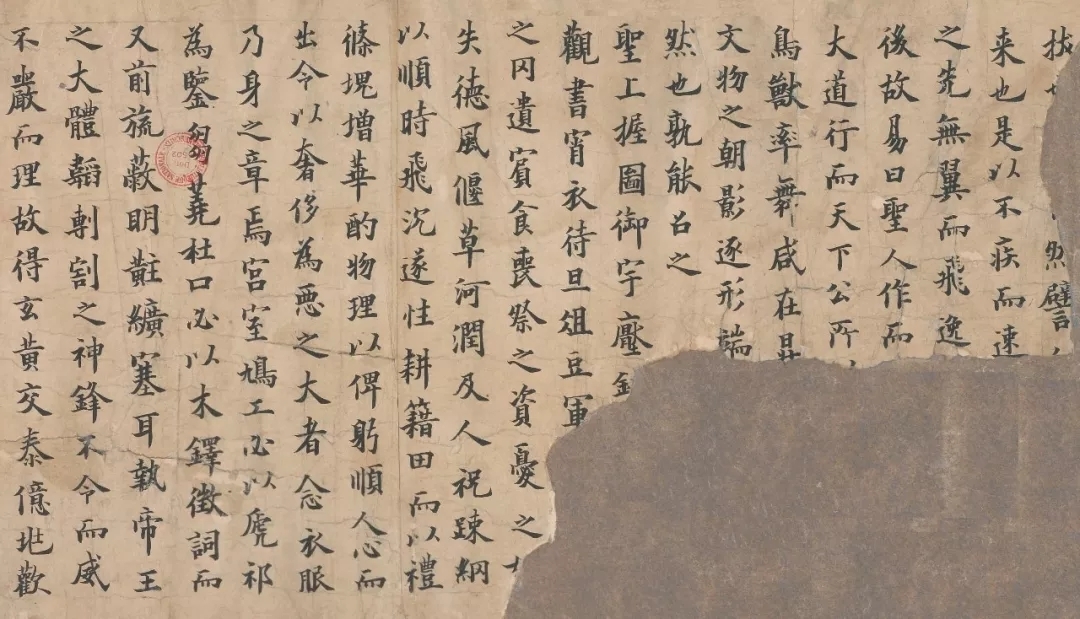 拔 然譬
来也是以不疾而速
之先無翼而飛逸
後故易曰聖人作而
大道行而天下公所
鳥獸率舞咸在
文物之朝影逐形端
然也孰能召之
聖上握圖御宇
觀書宵衣待旦俎豆軍
之囚遺賓食喪祭之資憂之
失德風偃草河潤及人祝踈網
以順時飛沉遂性耕籍田而以禮
塊增華酌物理以俾躬順人心而
出令以奢侈為惡之大者念衣服
乃身之章焉宮室鳩工必以虒祁
為鑒芻蕘杜口必以木鐸徵詞而
又前旒蔽明黈纊塞耳執帝王
之大體韜剸割之神鋒不令而威
不嚴而理故得玄黃交泰億兆歡